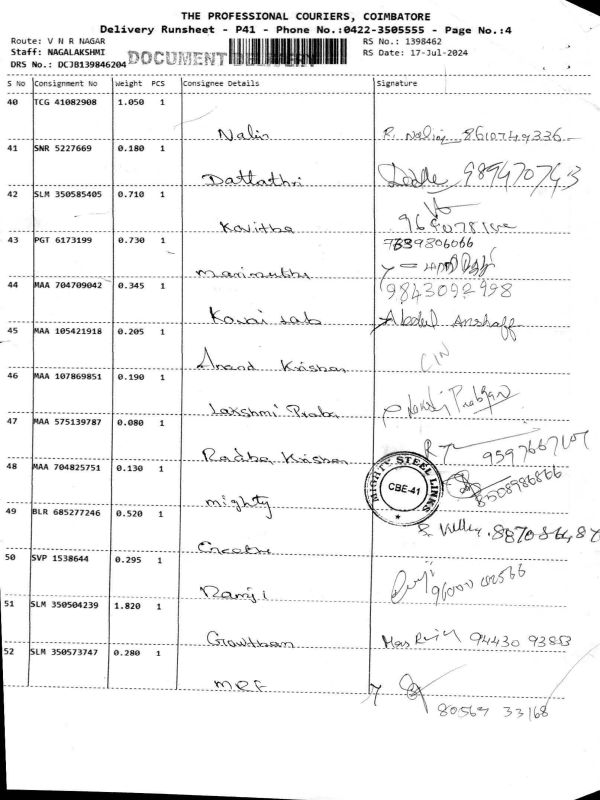 THE PROFESSIONAL COURIERS, COIMBATORE
Delivery Runsheet - P41 - Phone No.:0422-3505555 - Page No.:4
Route: V N R NAGAR
RS No.: 1398462
Staff: NAGALAKSHMI
DOCUMENT DELIVERY
RS Date: 17-Jul-2024
DRS No.: DCJB139846204
S No Consignment No Weight PCS Consignee Details Signature
40 TCG 41082908 1.050 1
Nalin R. Nalin 8610749336
41 SNR 5227669 0.180 1
Dattathri 989470743
42 SLM 350585405 0.710 1
Kavitha
43 PGT 6173199 0.730 1 7639806066
Marimuthu
44 MAA 704709042 0.345 1 9843092998
Kovai Abdul
45 MAA 105421918 0.205 1
Anand Krishan CIN
46 MAA 107869851 0.190 1
Lakshmi Praba
47 MAA 575139787 0.080 1
Radha Krishan 9597667107
48 MAA 704825751 0.130 1
MIGHTY STEEL LINKS
CBE-41
mighty 8508986866
49 BLR 685277246 0.520 1
50 SVP 1538644 0.295 1
Ramji
51 SLM 350504239 1.820 1
Gowthan 94430 93853
52 SLM 350573747 0.280 1
MRF
80569 33168